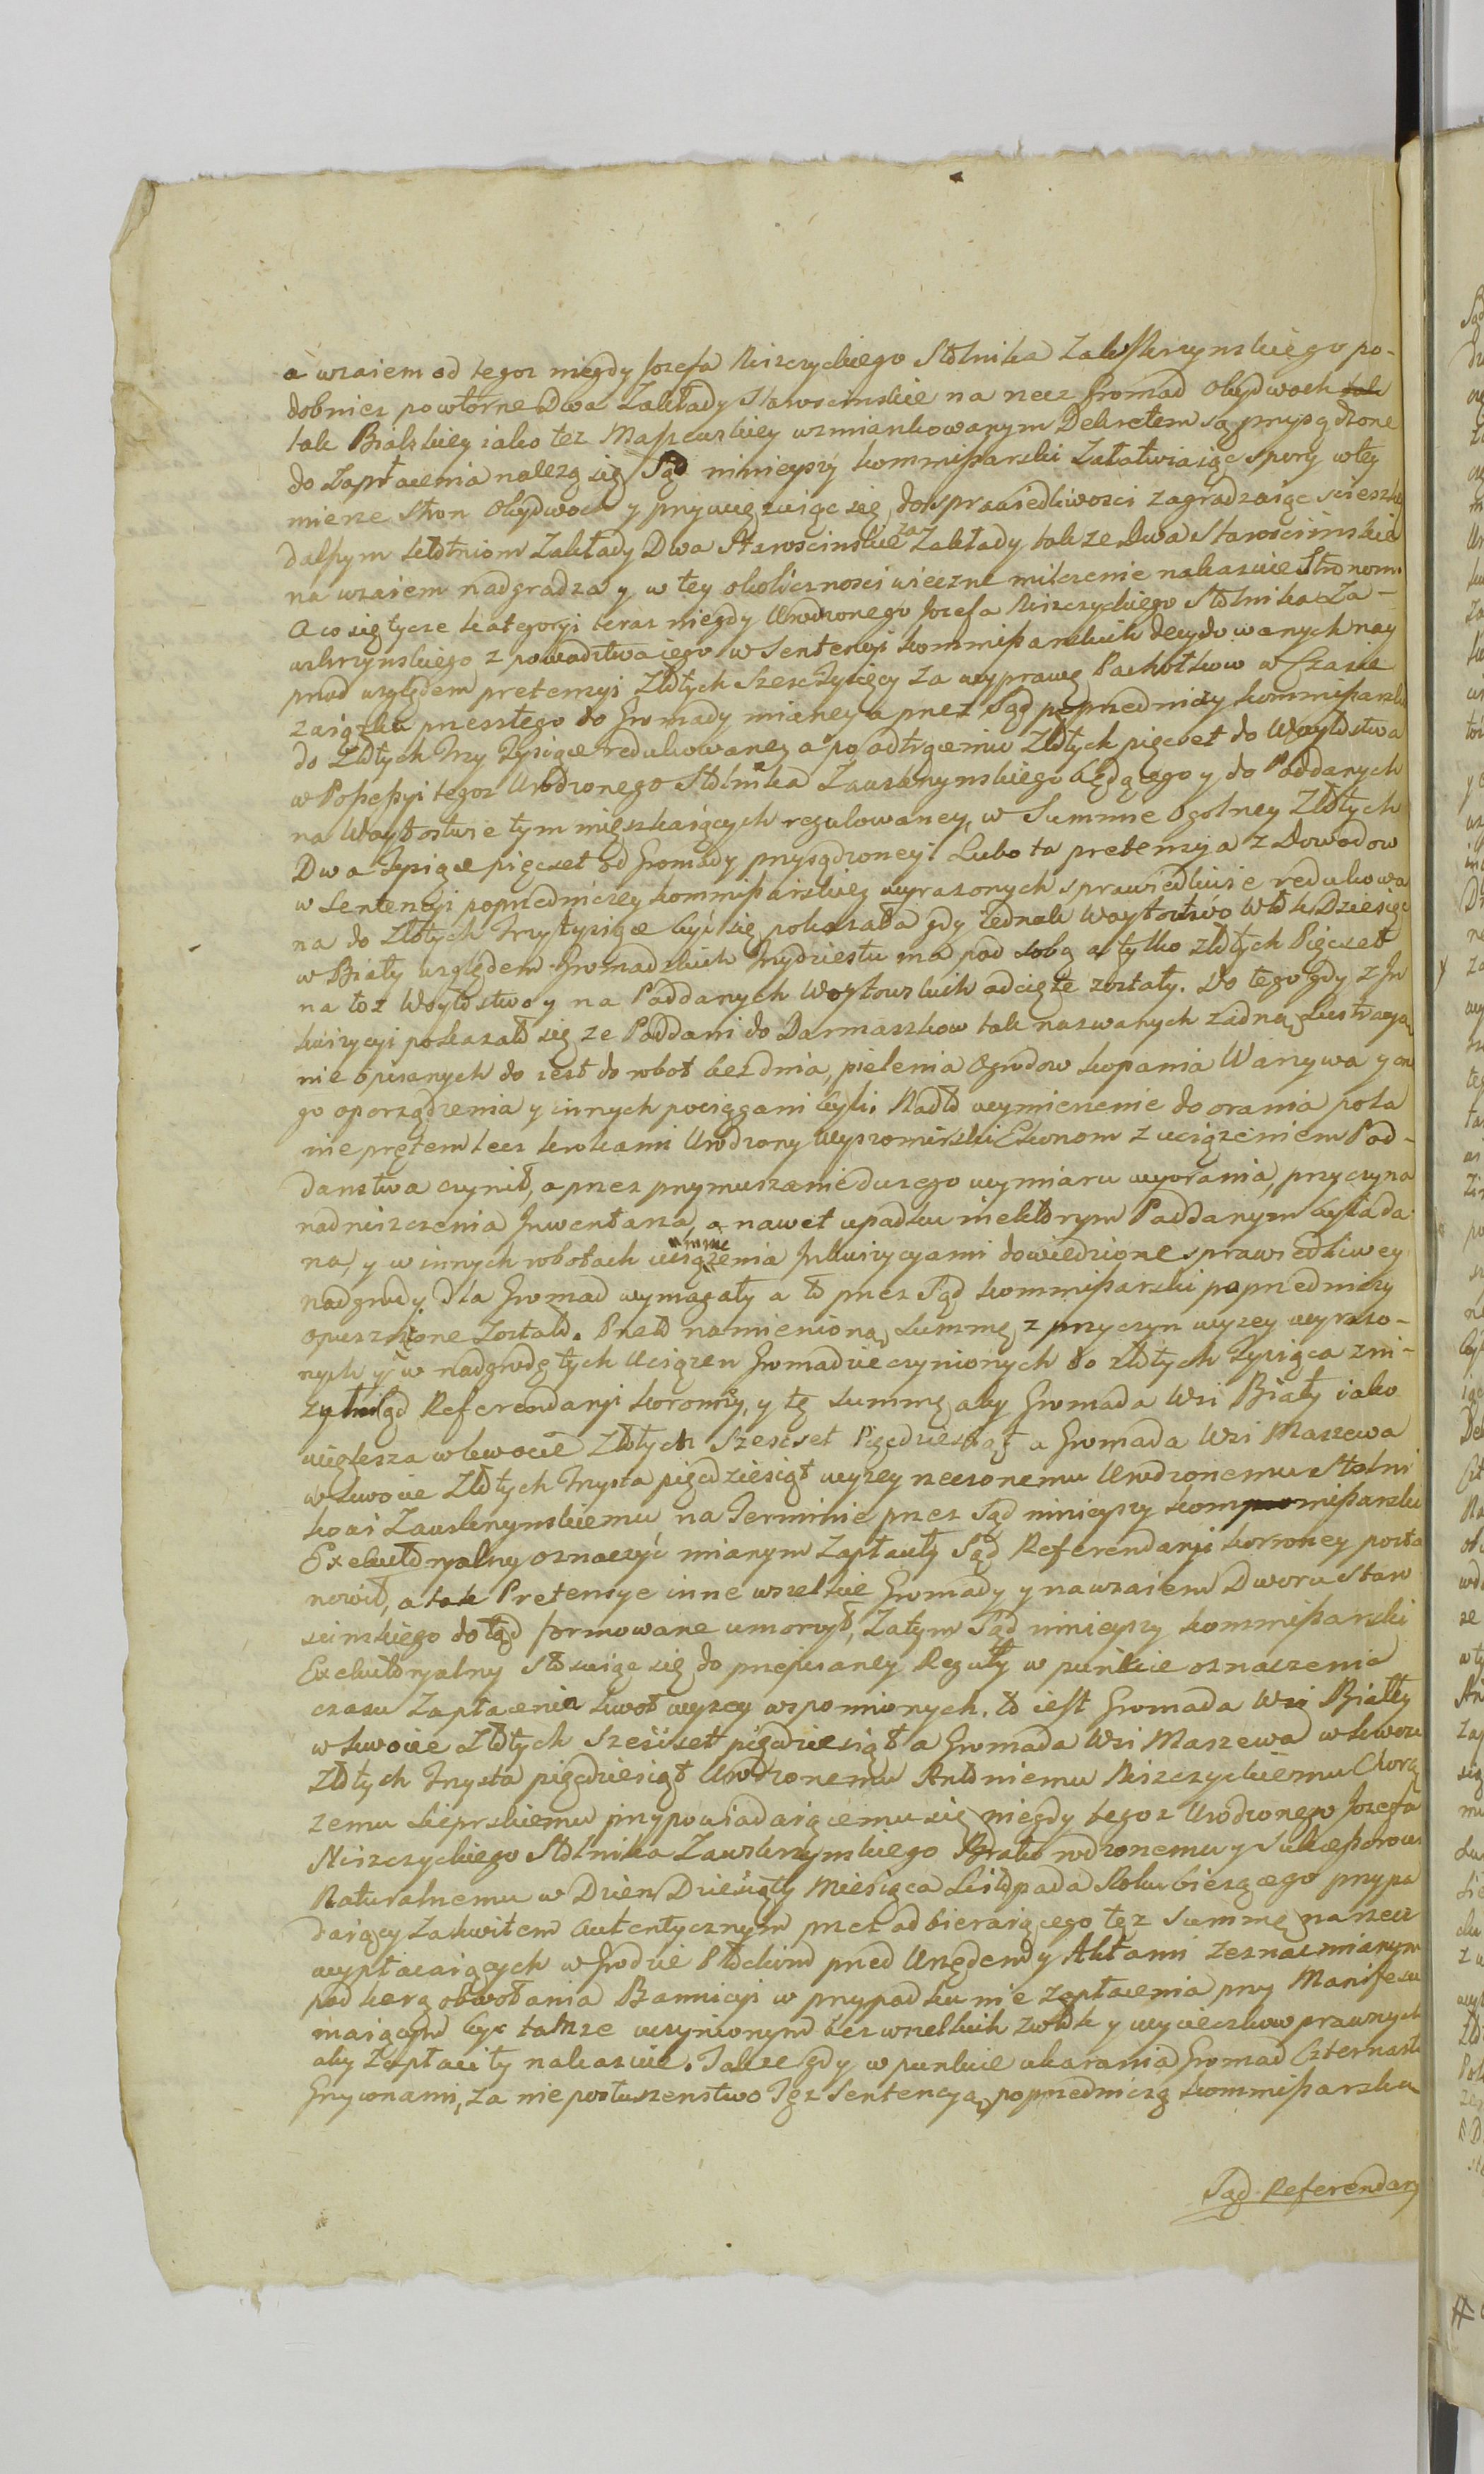 a wzaiem od tegoz niegdy Jozefa Niszczyckiego Stolnika Zawskrzynskiego po-
dobniez powtorne Dwa Zakłady Staroscinskie na rzecz Gromad Obydwoch tak
tak Bialskiey iako tez Maszewskiey wzmiankowanym Dekretem są przysądzone
do Zapłacenia nalezą się, Sąd ninieyszy kommissarski Załatwiaiąc spory w tey
mierze Stron Obydwoch y przywięzuiąc się do sprawiedliwosci zagradzaiąc scieszkę
dalszym kłotniom Zakłady Dwa Starościnskie za Zakłady takze dwa Starościnskie
na wzaiem nadgradza y w tey okolicznosci wieczne milczenie nakazuie Stronom.
A co się tycze kategoryi teraz niegdy Urodzonego Jozefa Niszczyckiego Stolnika Za-
wskrzynskiego z powodztwa iego w Sentencyi kommissarskich decydowanych nay
przod względem pretensyi Złotych Szesc Tysięcy za wyprawę Pachołkow w Czasie
związku przeszłego do Gromady mianey a przez Sąd poprzedniczy kommissarski
do Złotych Trzy Tysiące redukowaney a po odtrąceniu Złotych pięcset do Woytostwa
w Possessyi tegoz Urodzonego Stolnika Zawskrzynskiego będącego y do Poddanych
na Woytostwie tym mięszkaiących regulowaney, w Summie Ogolney Złotych
Dwa Tysiące pięcset od Gromady przysądzoney. Lubo ta pretensyja z Dowodow
w Sentencyi poprzedniczey kommissarskiey wyrazonych sprawiedliwie redukowa
na do Złotych Trzy tysiące być się pokazała gdy iednak Woytostwo Włok Dziesięć
w Biały względem Gromadzkich Trzydziestu ma pod sobą a tylko złotych Pięcset
na toz Woytostwo y na Poddanych Woytowskich odcięte zostały. Do tego gdy z In
kwizycyi pokazało się ze Poddani do Darmaszkow tak nazwanych Zadną Lustracyą
nie opisanych to iest do robot bez dnia, pielenia Ogrodow kopania Warzywa y on
go oporządzenia y innych pociągani byli. Nadto wymierzenie do orania pola
nie prętem lecz krokami Urodzony Wyszomirski Ekonom z uciązeniem Pod-
danstwa czynił, a przez przymuszenie duzego wymiaru wyorania, przyczyna
nadniszczenia Inwentarza, a nawet upadku niektorym Poddanym była da
na, y w innych robotach uciązenia Inkwizycyami dowiedzione sprawiedliwey
nadgrody dla Gromad wymagały a to przez Sąd kommissarski poprzedniczy
opuszczone zostało. Przeto namienioną Summę z przyczyn wyzey wyrazo-
nych y w nadgrodę tych Uciązen Gromadzie czynionych do złotych Tysiąca zni-
zył Sąd Referendaryi koronny, y tę Summę aby Gromada Wsi Biały iako
większa w kwocie Złotych Szescset Pięcdziesiąt a Gromada Wsi Maszewa
w kwocie Złotych Trzysta pięcdziesiąt wyzey rzeczonemu Urodzonemu Stolni
kowi Zawskrzynskiemu, na Terminie przez Sąd ninieyszy kommissarski
Exekutoryalny oznaczyć mianym zapłaciły Sąd Referendaryi koronney posta
nowił, a tak Pretensye inne wszelkie Gromady y nawzaiem Dworu Staro
scinskiego dotąd formowane umorzył, Zatym Sąd ninieyszy kommissarski
Exekutoryalny stosuiąc się do przepisaney Reguły w punkcie oznaczenia
czasu Zapłacenia kwot wyzey wspomnionych, to iest Gromada Wsi Biały
w kwocie Złotych Szescset pięcdziesiąt a Gromada Wsi Maszewa w kwocie
Złotych Trzysta pięcdziesiąt Urodzonemu Antoniemu Niszczyckiemu Chorą
zemu Sieprskiemu przypowiadaiącemu się niegdy tegoz Urodzonego Jozefa
Niszczyckiego Stolnika Zawskrzynskiego Bratu rodzonemu y Sukcessorowi
Naturalnemu w Dzien Dziesiąty Miesiąca Listopada Roku biezącego przypa
daiący Zakwitem autentycznym przez odbieraiącego tęz Summę na rzecz
wypłacaiących w Grodzie Płockim przed Urzędem y Aktami zeznac mianym
pod karą obwołania Bannicyi w przypadku nie zapłacenia przy Manifescie
maiącym być tamze uczynionym bez wszelkich zwłok y wycieczkow prawnych
aby zapłaciły nakazuie. Takze gdy w punkcie ukarania Gromad Czternastu
Grzywnami, za nieposłuszenstwo Tęz Sentencyą poprzedniczą kommissarską
Sąd Referendary